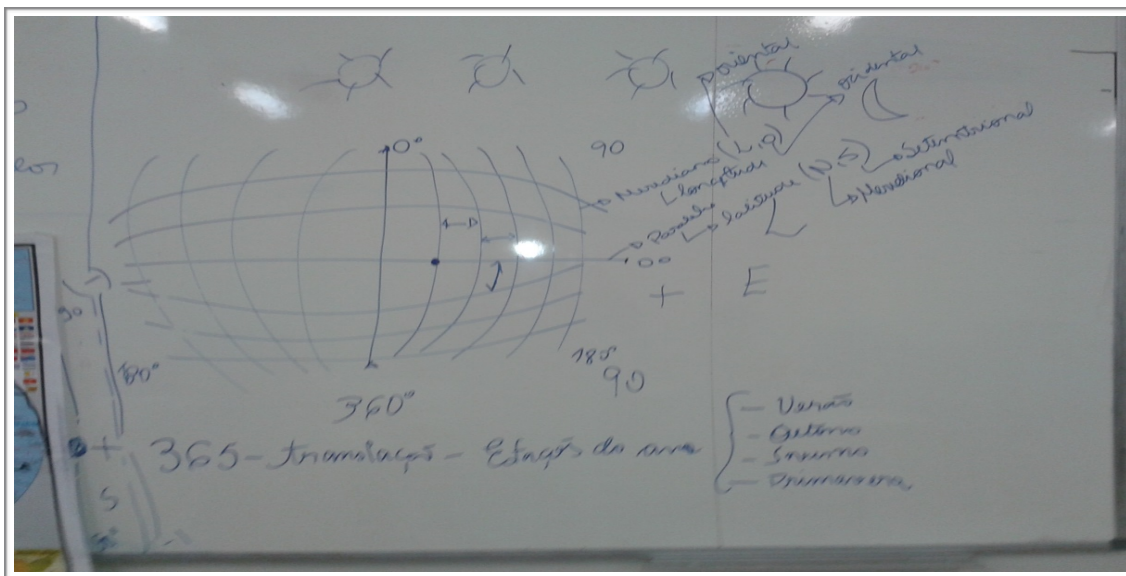 Oriental
Ocidental
0°
90
Meridiano (L,O)
Longitude
Paralelo
latitude (N,S)
Setentrional
Meridional
00
+ E
90
180°
180°
90
360°
365 - translação - Estações do ano
- Verão
- Outono
- Inverno
- Primavera
+
S